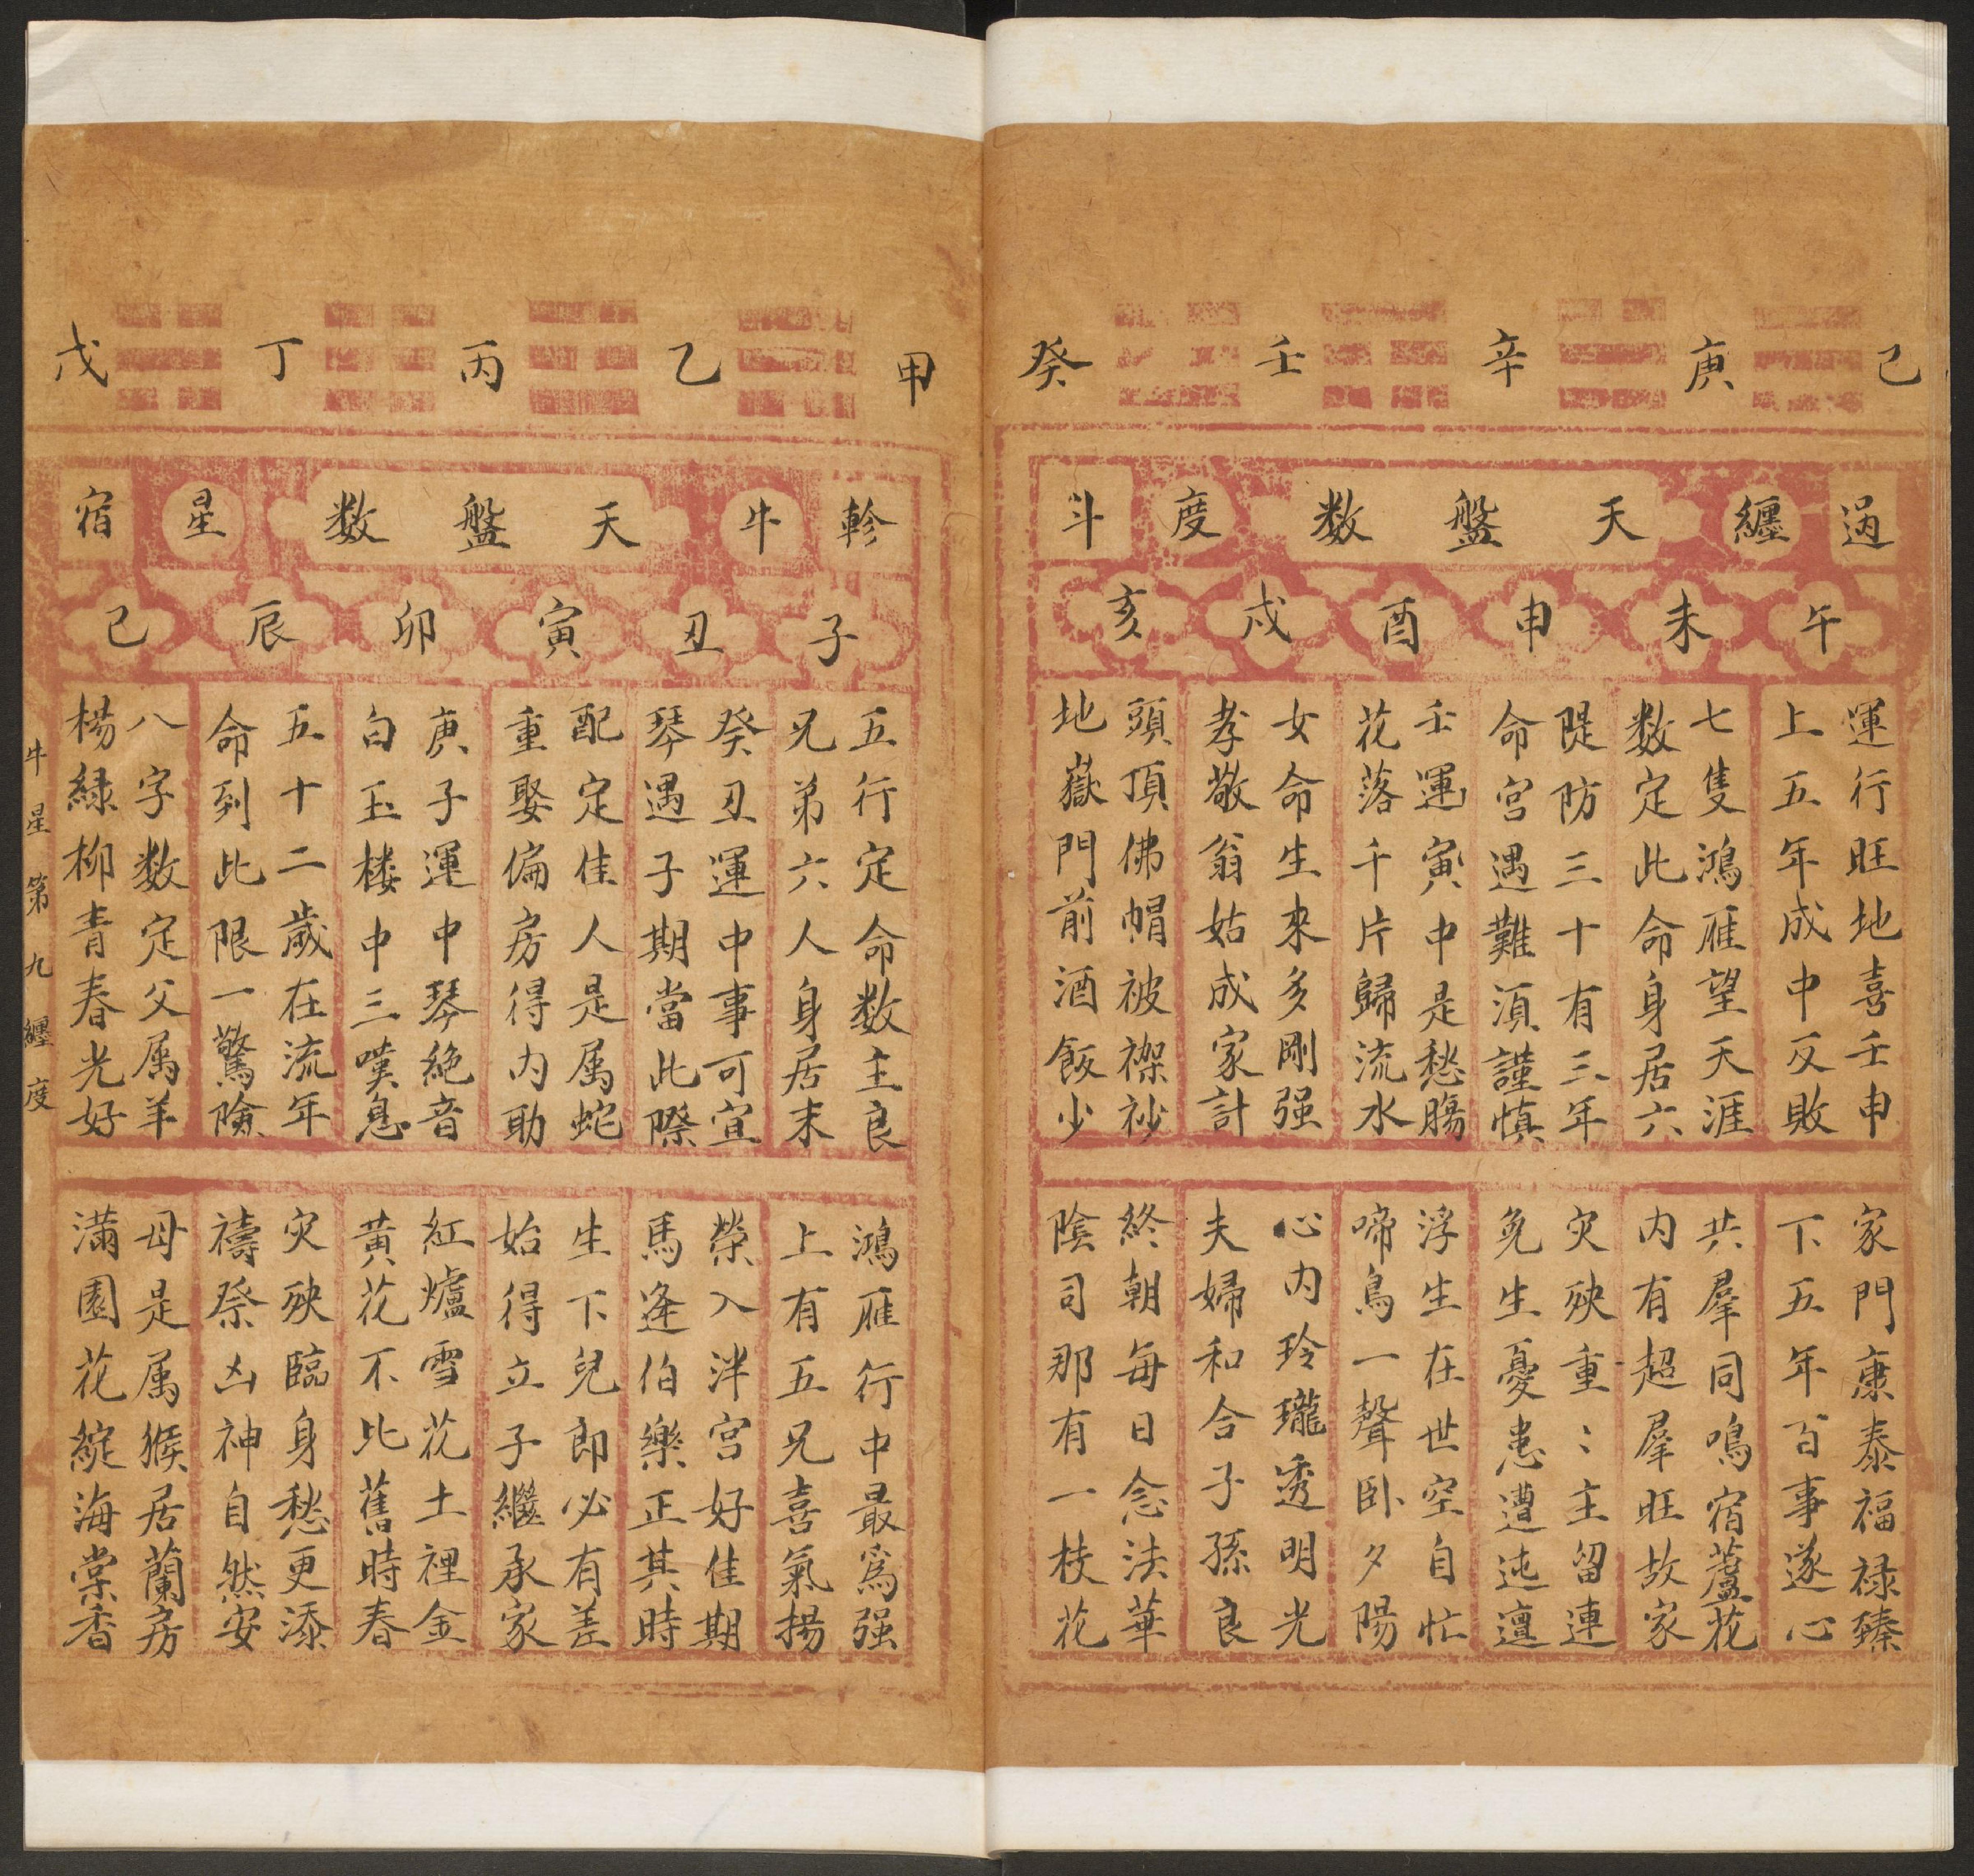 己 庚 辛 壬 癸
過 纏 天盤数 度 斗
午 未 申 酉 戌 亥
運行旺地喜壬申
上五年成中反敗
七隻鴻雁望天涯
数定此命身居六
隄防三十有三年
命宮遇難須謹慎
壬運寅中是愁腸
花落千片歸流水
女命生來多剛强
孝敬翁姑成家計
頭頂佛帽被袈裟
地嶽門前酒飯少
家門康泰福禄臻
下五年百事遂心
共羣同鳴宿蘆花
内有超羣旺故家
灾殃重〻主留連
免生憂患遭迍邅
浮生在世空自忙
啼鳥一聲卧夕陽
心内玲瓏透明光
夫婦和合子孫良
終朝每日念法華
陰司那有一枝花
甲 乙 丙 丁 戊
軫 牛 天盤数 星 宿
子 丑 寅 卯 辰 巳
五行定命数主良
兄弟六人身居末
癸丑運中事可宜
琴遇子期當此際
配定佳人是属蛇
重娶偏房得内助
庚子運中琴絶音
白玉楼中三嘆息
五十二歲在流年
命到此限一驚險
八字数定父属羊
楊緑柳青春光好
鴻雁行中最爲强
上有五兄喜氣揚
榮入泮宮好佳期
馬逢伯樂正其時
生下兒郎必有差
始得立子繼承家
紅爐雪花土裡金
黄花不比舊時春
灾殃臨身愁更添
禱祭凶神自然安
母是属猴居蘭房
滿園花綻海棠香
牛星第九纏度